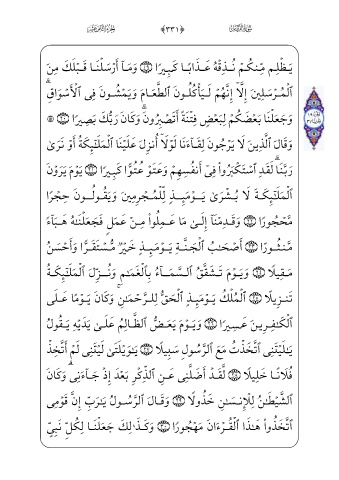 سورة الفرقان ﴿٣٣١﴾ الجزء التاسع عشر
يَظْلِم مِّنكُمْ نُذِقْهُ عَذَابًا كَبِيرًا ۝ وَمَآ أَرْسَلْنَا قَبْلَكَ مِنَ
ٱلْمُرْسَلِينَ إِلَّآ إِنَّهُمْ لَيَأْكُلُونَ ٱلطَّعَامَ وَيَمْشُونَ فِى ٱلْأَسْوَاقِ ۗ
وَجَعَلْنَا بَعْضَكُمْ لِبَعْضٍ فِتْنَةً أَتَصْبِرُونَ ۗ وَكَانَ رَبُّكَ بَصِيرًا ۝ ۞
وَقَالَ ٱلَّذِينَ لَا يَرْجُونَ لِقَآءَنَا لَوْلَآ أُنزِلَ عَلَيْنَا ٱلْمَلَٰٓئِكَةُ أَوْ نَرَىٰ
رَبَّنَا ۗ لَقَدِ ٱسْتَكْبَرُوا۟ فِىٓ أَنفُسِهِمْ وَعَتَوْ عُتُوًّا كَبِيرًا ۝ يَوْمَ يَرَوْنَ
ٱلْمَلَٰٓئِكَةَ لَا بُشْرَىٰ يَوْمَئِذٍ لِّلْمُجْرِمِينَ وَيَقُولُونَ حِجْرًا
مَّحْجُورًا ۝ وَقَدِمْنَآ إِلَىٰ مَا عَمِلُوا۟ مِنْ عَمَلٍ فَجَعَلْنَٰهُ هَبَآءً
مَّنثُورًا ۝ أَصْحَٰبُ ٱلْجَنَّةِ يَوْمَئِذٍ خَيْرٌ مُّسْتَقَرًّا وَأَحْسَنُ
مَقِيلًا ۝ وَيَوْمَ تَشَقَّقُ ٱلسَّمَآءُ بِٱلْغَمَٰمِ وَنُزِّلَ ٱلْمَلَٰٓئِكَةُ
تَنزِيلًا ۝ ٱلْمُلْكُ يَوْمَئِذٍ ٱلْحَقُّ لِلرَّحْمَٰنِ ۚ وَكَانَ يَوْمًا عَلَى
ٱلْكَٰفِرِينَ عَسِيرًا ۝ وَيَوْمَ يَعَضُّ ٱلظَّالِمُ عَلَىٰ يَدَيْهِ يَقُولُ
يَٰلَيْتَنِى ٱتَّخَذْتُ مَعَ ٱلرَّسُولِ سَبِيلًا ۝ يَٰوَيْلَتَىٰ لَيْتَنِى لَمْ أَتَّخِذْ
فُلَانًا خَلِيلًا ۝ لَّقَدْ أَضَلَّنِى عَنِ ٱلذِّكْرِ بَعْدَ إِذْ جَآءَنِى ۗ وَكَانَ
ٱلشَّيْطَٰنُ لِلْإِنسَٰنِ خَذُولًا ۝ وَقَالَ ٱلرَّسُولُ يَٰرَبِّ إِنَّ قَوْمِى
ٱتَّخَذُوا۟ هَٰذَا ٱلْقُرْءَانَ مَهْجُورًا ۝ وَكَذَٰلِكَ جَعَلْنَا لِكُلِّ نَبِىٍّ